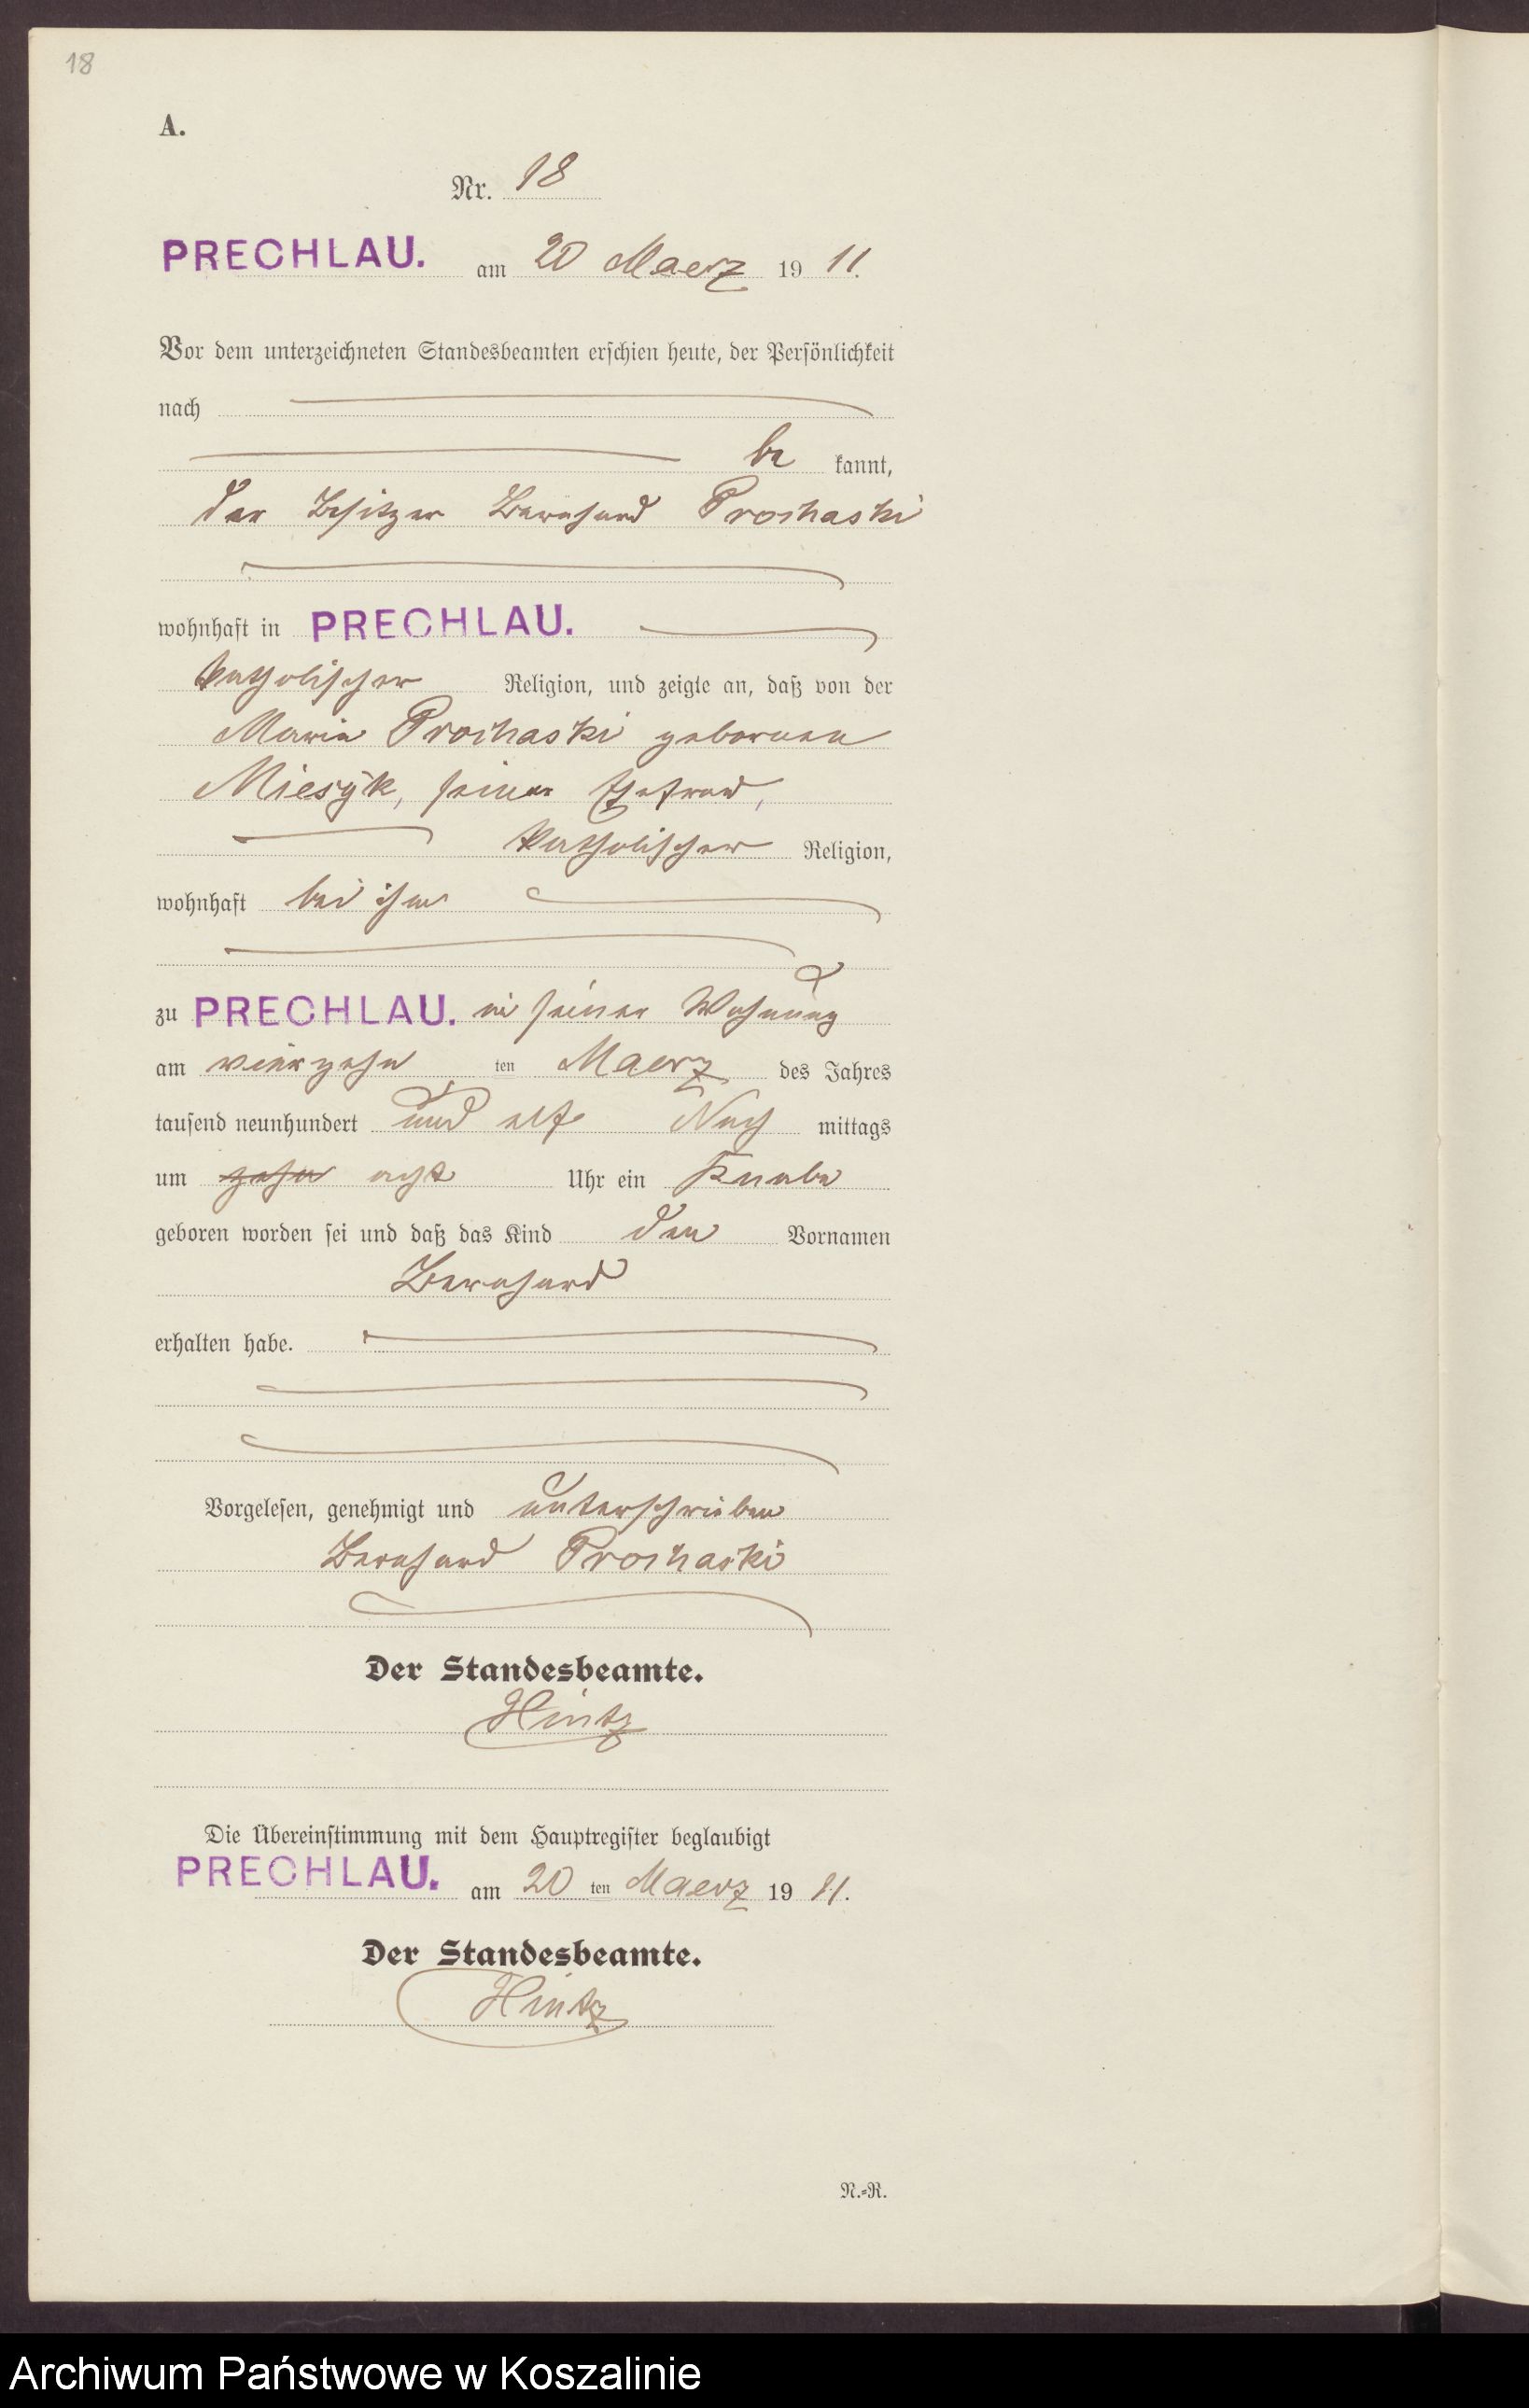 18
A.
Nr. 18
PRECHLAU. am 20 Maerz 19 11.
Vor dem unterzeichneten Standesbeamten erschien heute, der Persönlichkeit
nach
be kannt,
der Besitzer Bernhard Prochaski
wohnhaft in PRECHLAU.
katholischer Religion, und zeigte an, daß von der
Maria Prochaski geborenen
Miesÿk, seiner Ehefrau,
katholischer Religion,
wohnhaft bei ihm
zu PRECHLAU. in seiner Wohnung
am vierzehn ten Maerz des Jahres
tausend neunhundert und elf Nach mittags
um zehn acht Uhr ein Knabe
geboren worden sei und daß das Kind den Vornamen
Bernhard
erhalten habe.
Vorgelesen, genehmigt und unterschrieben
Bernhard Prochaski
Der Standesbeamte.
Hintz
Die Übereinstimmung mit dem Hauptregister beglaubigt
PRECHLAU. am 20 ten Maerz 19 11.
Der Standesbeamte.
Hintz
N.=R.
Archiwum Państwowe w Koszalinie